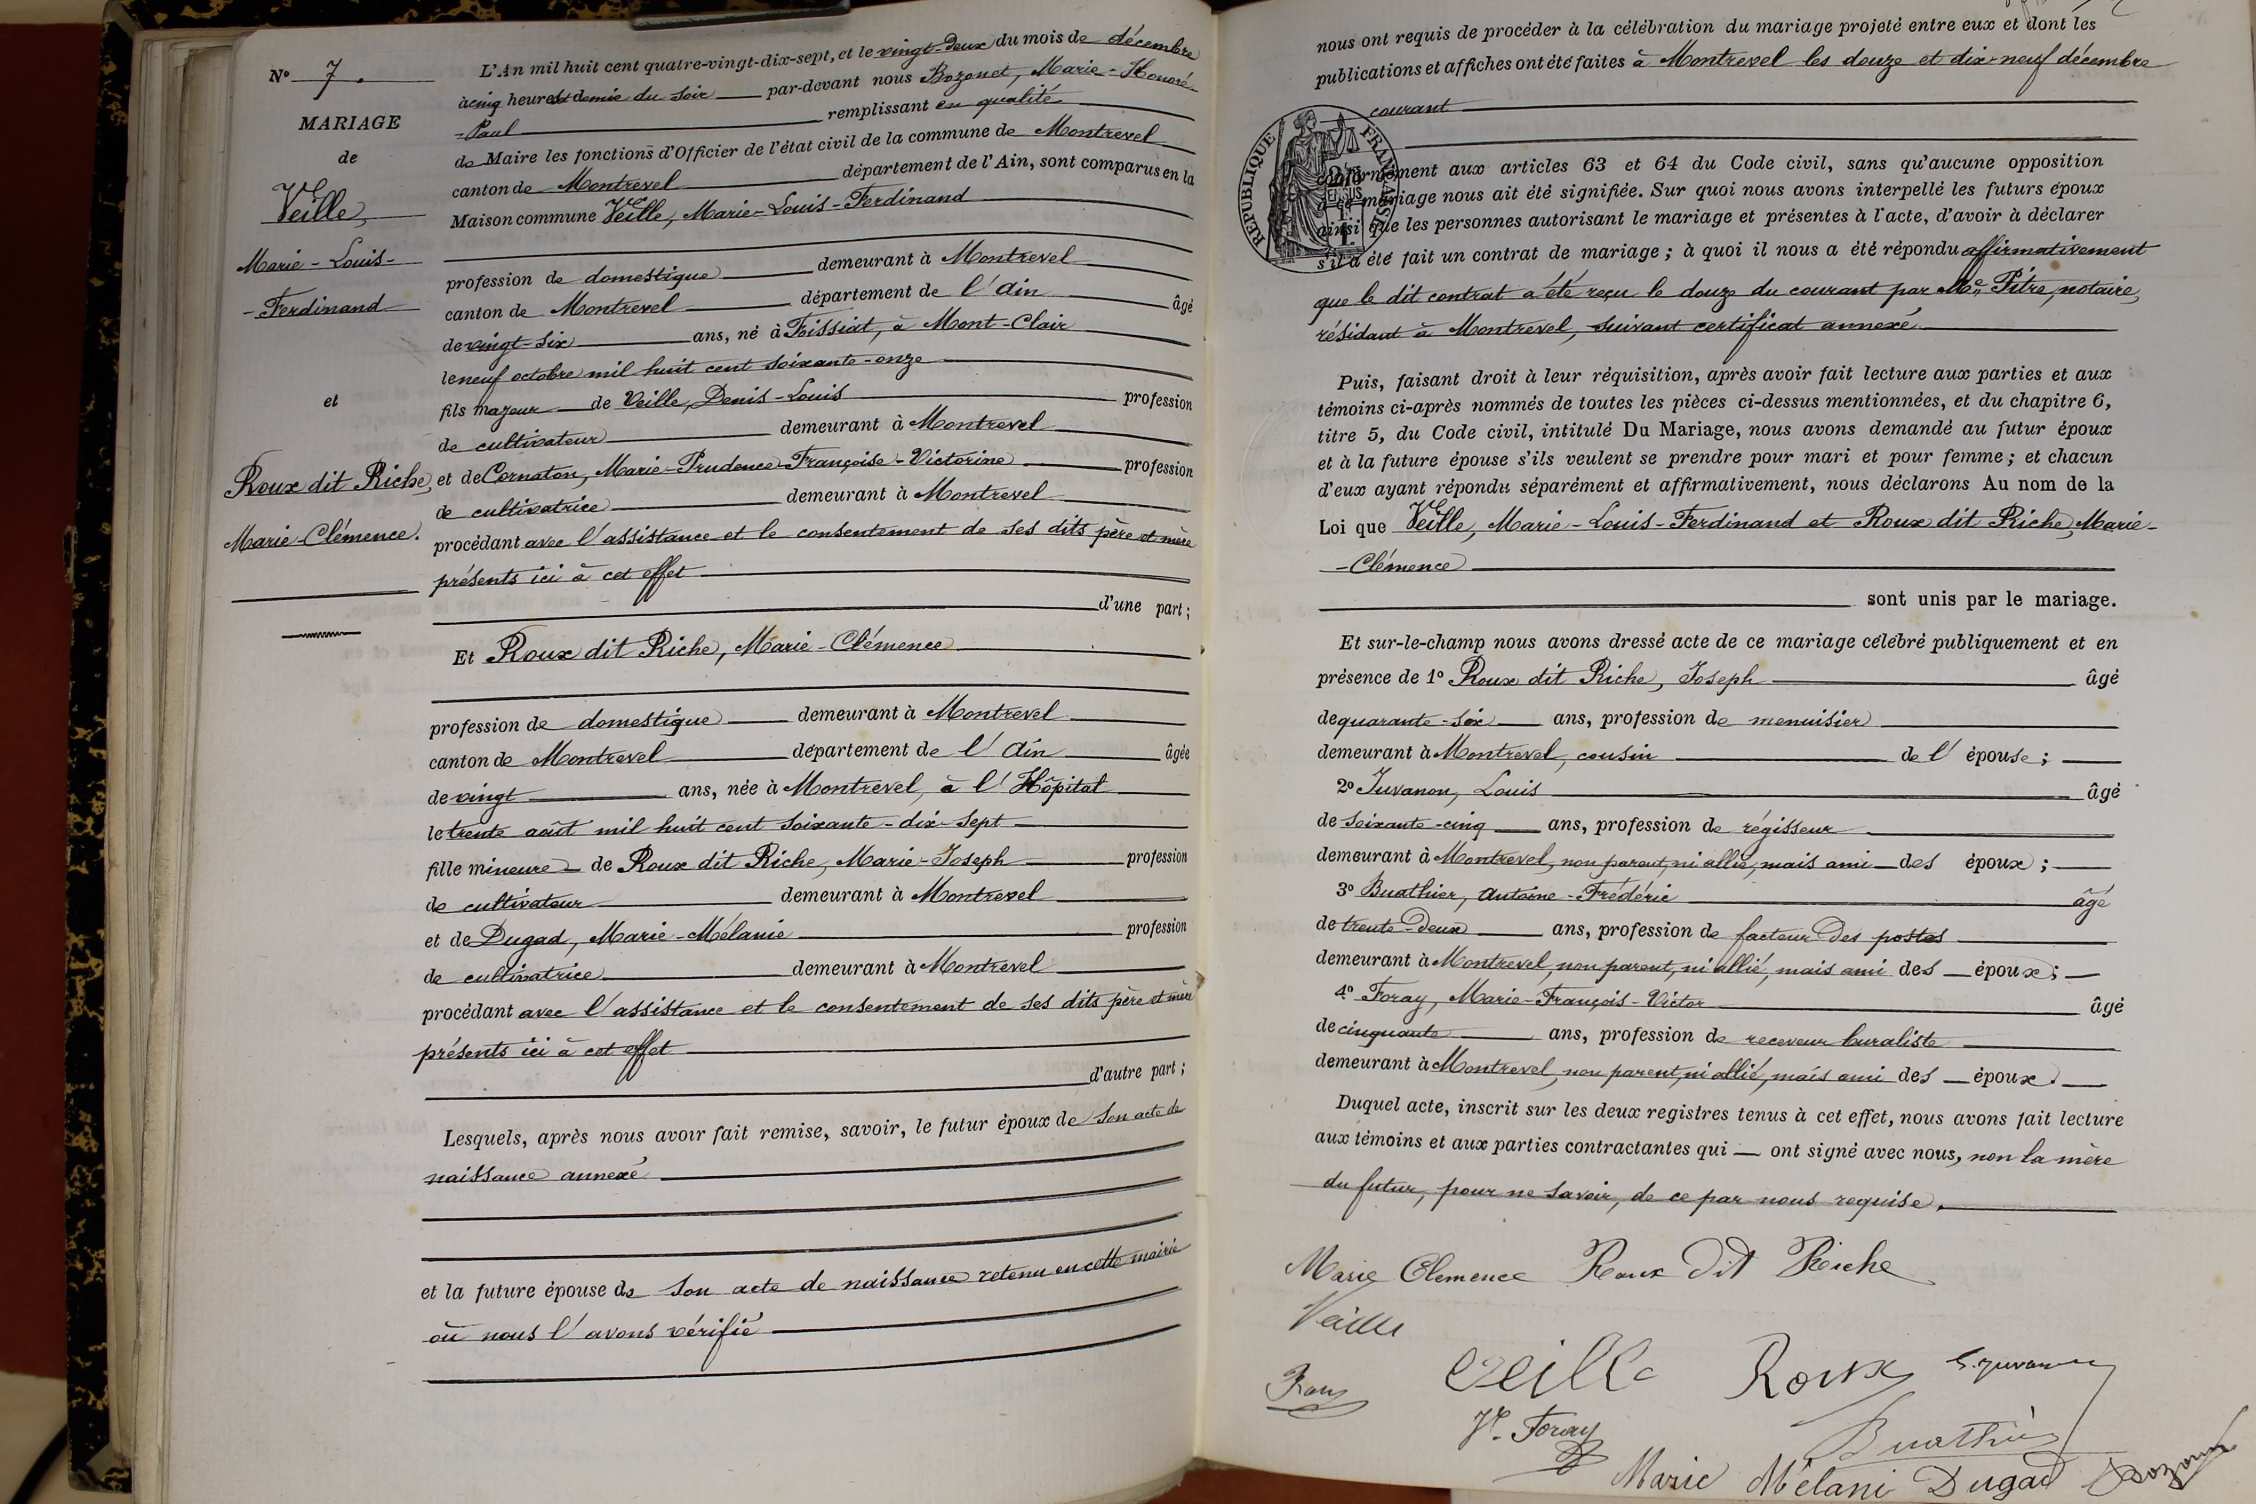 N° 7.
MARIAGE
de
Veille,
Marie-Louis-
-Ferdinand
et
Roux dit Riche,
Marie-Clémence.
L'An mil huit cent quatre-vingt-dix-sept, et le vingt-deux du mois de décembre
à cinq heures et demie du soir par-devant nous Bozonet, Marie-Honoré-
-Paul remplissant en qualité
de Maire les fonctions d'Officier de l'état civil de la commune de Montrevel
canton de Montrevel département de l'Ain, sont comparus en la
Maison commune Veille, Marie-Louis-Ferdinand
profession de domestique demeurant à Montrevel
canton de Montrevel département de l'Ain âgé
de vingt-six ans, né à Foissiat, à Mont-Clair
le neuf octobre mil huit cent soixante-onze
fils majeur de Veille, Denis-Louis profession
de cultivateur demeurant à Montrevel
et de Cornaton, Marie-Prudence-Françoise-Victorine profession
de cultivatrice demeurant à Montrevel
procédant avec l'assistance et le consentement de ses dits père et mère
présents ici à cet effet
d'une part;
Et Roux dit Riche, Marie-Clémence
profession de domestique demeurant à Montrevel
canton de Montrevel département de l'Ain âgée
de vingt ans, née à Montrevel, à l'Hôpital
le trente août mil huit cent soixante-dix-sept
fille mineure de Roux dit Riche, Marie-Joseph profession
de cultivateur demeurant à Montrevel
et de Dugad, Marie-Mélanie profession
de cultivatrice demeurant à Montrevel
procédant avec l'assistance et le consentement de ses dits père et mère
présents ici à cet effet
d'autre part;
Lesquels, après nous avoir fait remise, savoir, le futur époux de son acte de
naissance annexé
et la future épouse de son acte de naissance retenu en cette mairie
où nous l'avons vérifié
nous ont requis de procéder à la célébration du mariage projeté entre eux et dont les
publications et affiches ont été faites à Montrevel les douze et dix-neuf décembre
courant
RÉPUBLIQUE FRANÇAISE
conformément aux articles 63 et 64 du Code civil, sans qu'aucune opposition
à ce mariage nous ait été signifiée. Sur quoi nous avons interpellé les futurs époux
ainsi que les personnes autorisant le mariage et présentes à l'acte, d'avoir à déclarer
s'il a été fait un contrat de mariage; à quoi il nous a été répondu affirmativement
que le dit contrat a été reçu le douze du courant par Me Pitre, notaire,
résidant à Montrevel, suivant certificat annexé
Puis, faisant droit à leur réquisition, après avoir fait lecture aux parties et aux
témoins ci-après nommés de toutes les pièces ci-dessus mentionnées, et du chapitre 6,
titre 5, du Code civil, intitulé Du Mariage, nous avons demandé au futur époux
et à la future épouse s'ils veulent se prendre pour mari et pour femme; et chacun
d'eux ayant répondu séparément et affirmativement, nous déclarons Au nom de la
Loi que Veille, Marie-Louis-Ferdinand et Roux dit Riche, Marie-
-Clémence
sont unis par le mariage.
Et sur-le-champ nous avons dressé acte de ce mariage célébré publiquement et en
présence de 1° Roux dit Riche, Joseph âgé
de quarante-six ans, profession de menuisier
demeurant à Montrevel, cousin de l'épouse;
2° Juvanon, Louis âgé
de soixante-cinq ans, profession de régisseur
demeurant à Montrevel, non parent, ni allié, mais ami des époux;
3° Buathier, Antoine-Frédéric âgé
de trente-deux ans, profession de facteur des postes
demeurant à Montrevel, non parent, ni allié, mais ami des époux;
4° Foray, Marie-François-Victor âgé
de cinquante ans, profession de receveur buraliste
demeurant à Montrevel, non parent, ni allié, mais ami des époux.
Duquel acte, inscrit sur les deux registres tenus à cet effet, nous avons fait lecture
aux témoins et aux parties contractantes qui ont signé avec nous, non la mère
du futur, pour ne savoir, de ce par nous requise.
Marie Clemence Roux dit Riche
Veille
Veille Roux L. Juvanon
Roux
Vr. Foray Buathier
Marie Mélani Dugad Bozonet